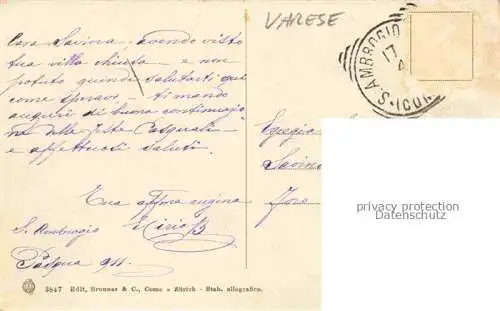 VARESE
S. AMBROGIO
17
Cara Savina, avendo visto
tua villa chiusa e non
potuto quindi salutarti qui
come speravo - ti mando
auguri di buona continuazio
ne delle feste Pasquali
e affettuosi saluti.
Tua affma cugina
S. Ambrogio
Pasqua 911.
Egregia
Savina
privacy protection
Datenschutz
3847 Edit, Brunner & C., Como e Zürich - Stab. eliografico.